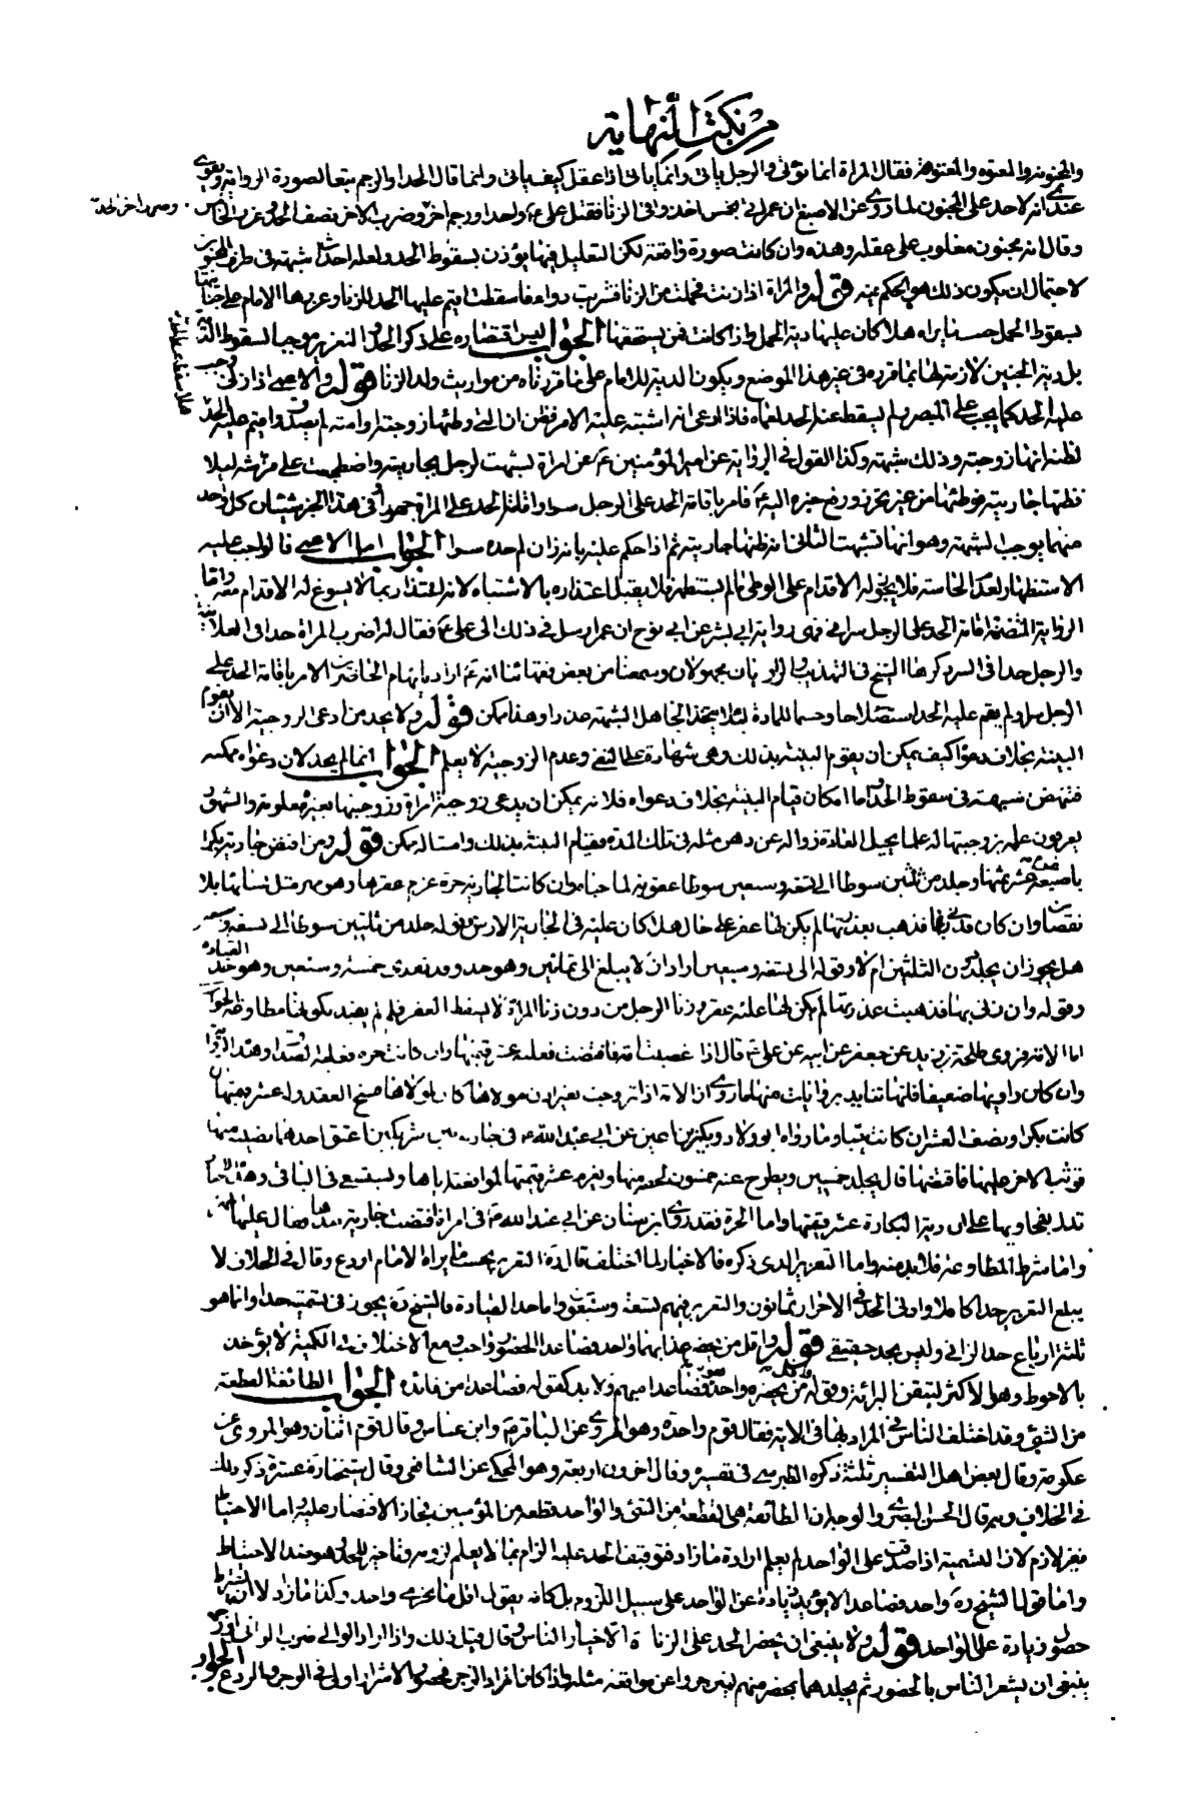 من نكت النهاية
والمجنونة والمعتوه والمعتوهة فقال المرأة انما تؤتى والرجل ياتى وانما ياتى اذا عقل كيف ياتى وانما قال الحد او الرجم تبعا لصورة الرواية ويقوى
عندى انه لا حد على المجنون لما روى عن الاصبغ ان عمر اتى بخمس اخذوا فى الزنا فقتل على ع واحدا ورجم اخر وضرب الاخر نصف الحد وعزر الخامس
وضرب اخر الحد
وقال انه مجنون مغلوب على عقله وهذه وان كانت صورة واقعة لكن التعليل فيها يؤذن بسقوط الحد ولعله احداث شبهة فى طرف المجنون
لاحتمال ان يكون ذلك هو الحكم عينه قوله والمراة اذا زنت فحملت من الزنا فشربت دواء فاسقطت اقيم عليها الحد للزنا وعزرها الامام على جنايتها
بسقوط الحمل حسب ما يراه هلا كان عليها دية الحمل واذا كانت فمن يستحقها الجواب ليس اقتصاره على ذكر الحد والتعزير موجبا لسقوط الدية
بل دية الجنين لازمة لها بما قرره فى غير هذا الموضع ويكون الدية للامام على ما قررناه من مواريث ولد الزنا قوله والاعمى اذا زنى وجب
عليه الحد كما يجب على المبصر ولم يسقط عنه الحد لعماه فاذا ادعى انه اشتبه عليه الامر فظن ان التى وطئها زوجته او امته لم يصدق واقيم عليه الحد
هلا سقط عنه الحد
لظنه انها زوجته وذلك شبهة وكذا القول فى الرواية عن امير المؤمنين ع عن امراة تشبهت لرجل بجاريته واضطجعت على فراشه ليلا
فظنها جاريته فوطئها من غير تحرز ورفع خبره اليه ع فامر باقامة الحد على الرجل سرا واقامة الحد على المراة جهرا وفى هذا الخبر شيئان كل واحد
منهما يوجب الشبهة وهو انها تشبهت الثانى انه ظنها جاريته ثم اذا حكم عليه بانه زان لم حده سرا الجواب اما الاعمى فالواجب عليه
الاستظهار لفقد الحاسة فلا يجوز له الاقدام على الوطى ما لم يستظهر فلا يقبل اعتذاره بالاشتباه لانه اعتذار بما لا يسوغ له الاقدام معه واما
الرواية المتضمنة اقامة الحد على الرجل سرا فهى رواية ابى بشر عن ابى نوح ان عمر ارسل فى ذلك الى على ع فقال له اضرب المراة حدا فى العلانية
والرجل حدا فى السر ذكرها الشيخ فى التهذيب والراويان مجهولان وسمعنا من بعض فقهائنا انه ع اراد ايهام الحاضرين الامر باقامة الحد على
الرجل سرا ولم يقم عليه الحد استصلاحا وحسما للمادة لئلا يتخذ الجاهل الشبهة عذرا وهذا ممكن قوله ولا يحد من ادعى الزوجية الا ان يقوم
البينة بخلاف دعواه كيف يمكن ان يقوم البينة بذلك وهى شهادة على النفى وعدم الزوجية لا يعلم الجواب انما لم يحد لان دعواه ممكنة
فتنهض شبهة فى سقوط الحد واما امكان قيام البينة بخلاف دعواه فلانه يمكن ان يدعى زوجية امراة وزوجيتها بغيره معلومة والشهود
يعرفون علمه بزوجيتها له علما يحيل العادة زواله عن ذهن مثله فى تلك المدة فقيام البينة بذلك وامثاله ممكن قوله ومن افتض جارية بكرا
باصبعه غرم عشر ثمنها وجلد من ثلثين سوطا الى تسعة وتسعين سوطا عقوبة لما جناه وان كانت الجارية حرة غرم عقرها وهو مهر مثل نسائها بلا
نقصان وان كان قد زنى بها فذهب بعذرتها لم يكن لها عقر على حال هلا كان عليه فى الجارية الارش وقوله جلد من ثلثين سوطا الى تسعة وتسعين
هل يجوز ان يجلد دون الثلثين ام لا وقوله الى تسعة وتسعين اراد ان لا يبلغ الى ثمانين وهو حد وقد تعدى خمسة وسبعين وهو حد القيادة
وقوله وان زنى بها فذهبت عذرتها لم يكن لها عليه عقر وزنا الرجل من دون زنا المراة لا يسقط العقر فلم لم يقيد بكونها مطاوعة الجواب
اما الامة فروى طلحة بن زيد عن جعفر عن ابيه عن على ع قال اذا غصبت امة فافتضت فعليه عشر قيمتها وان كانت حرة فعليه الصداق وهذا الخبر
وان كان راويها ضعيفا فانها تتايد بروايات منها ما روى ان الامة اذا تزوجت بغير اذن مولاها كان لمولاها فسخ العقد وله عشر قيمتها ان
كانت بكرا ونصف العشر ان كانت ثيبا وما رواه ابو ولاد وبكير بن اعين عن ابى عبد الله ع فى جارية بين شريكين اعتق احدهما نصيبه منها
فوثب الاخر عليها فاقتضها قال يجلد خمسين ويطرح عنه خمسون لحقه منها ويغرم عشر قيمتها لمواقعته اياها وتستسعى فى الباقى وهذه الاخبار
تدل بفحاويها على ان دية البكارة عشر قيمتها واما الحرة فقد روى ابن سنان عن ابى عبد الله ع فى امراة افتضت جارية بيدها فقال عليها المهر
واما شرط المطاوعة فلا بد منه واما التعزير الذى ذكره فالاخبار لما اختلف قال ره التعزير بحسب ما يراه الامام اردع وقال فى الخلاف لا
يبلغ التعزير حدا كاملا وادنى الحد فى الاحرار ثمانون والتعزير فيهم تسعة وسبعون واما حد القيادة فالشيخ ره يجوز فى تسميته حدا وانما هو
ثلثة ارباع حد الزانى وليس بحد حقيقى قوله واقل من يحضر عذابهما واحد فصاعدا الحضور واجب ومع الاختلاف فى الكمية لا يؤخذ
بالاحوط وهو الاكثر لتيقن البرائة وقوله واقل من يحضره واحد فصاعدا مبهم ولا بد لقوله فصاعدا من فائدة الجواب الطائفة القطعة
من الشىء وقد اختلف الناس فى المراد بها فى الاية فقال قوم واحدة وهو المروى عن الباقر ع وابن عباس وقال قوم اثنان وهو المروى عن
عكرمة وقال بعض اهل التفسير ثلثة ذكره الطبرسى فى تفسيره وقال اخرون اربعة وهو المحكى عن الشافعى وقال شيخنا ره عشرة ذكر ذلك
فى الخلاف وبه قال الحسن البصرى والوجه ان الطائفة هى القطعة من الشىء والواحد قطعة من المؤمنين فجاز الاقتصار عليه اما الاحتياط
فغير لازم لان التسمية اذا صدقت على الواحد لم يعلم ارادة ما زاد فتوقيف الحد عليه الزام بما لا يعلم لزومه وتاخير للحد وهو ضد الاحتياط
واما قول الشيخ ره واحد فصاعدا لا يؤيد زيادة عن الواحد على سبيل اللزوم بل كانه يقول اقل ما يجزى واحد وكذا ما زاد لا ان الشرط
حضور زيادة على الواحد قوله ولا ينبغى ان يحضر الحد على الزناة الا خيار الناس وقال قبل ذلك واذا اراد الوالى ضرب الزانى او رجمه
ينبغى ان يشعر الناس بالحضور ثم يجلدهما بمحضر منهم لينزجروا عن مواقعة مثله فاذا كان المراد الزجر فحضور الاشرار اولى فى الوجر والردع الجواب